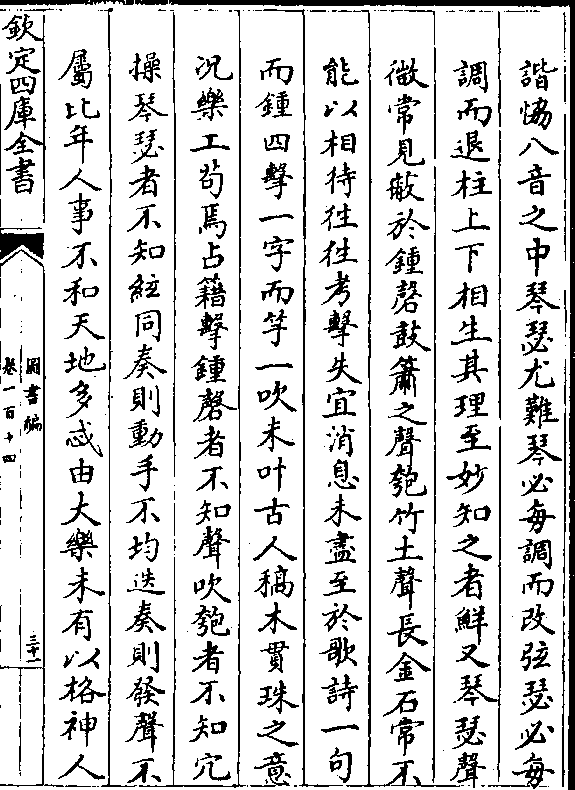 諧恊八音之中琴瑟尤難琴必每調而改弦瑟必每
調而退柱上下相生其理至妙知之者鮮又琴瑟聲
微常見蔽於鍾磬鼓簫之聲匏竹土聲長金石常不
能以相待徃徃考擊失宜消息未盡至於歌詩一句
而鍾四擊一字而竽一吹未叶古人槁木貫珠之意
况樂工苟焉占籍擊鍾磬者不知聲吹匏者不知穴
操琴瑟者不知絃同奏則動手不均迭奏則發聲不
屬比年人事不和天地多忒由大樂未有以格神人
欽定四庫全書
圖書編
卷一百十四
三十一